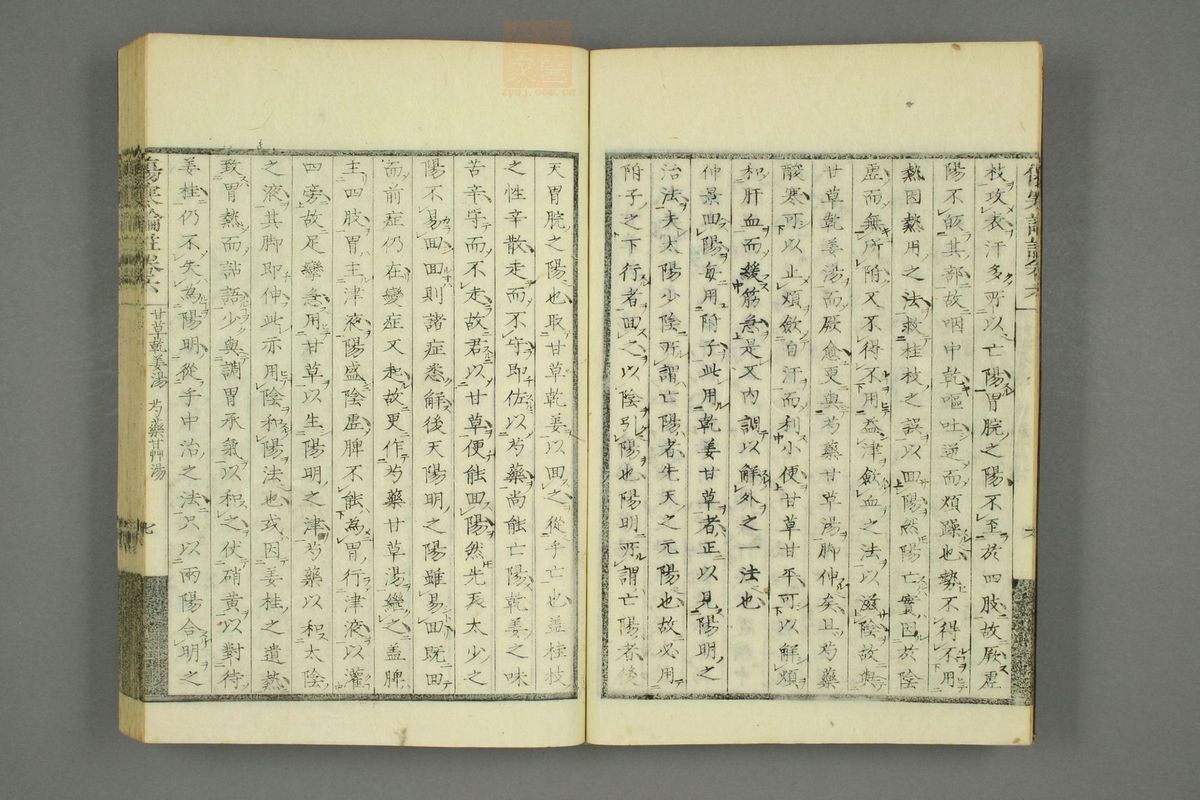 枝攻表汗多所以亡陽胃脘之陽不至於四肢故厥虛
陽不皈其部故咽中乾嘔吐逆而煩躁也勢不得不用
熱因熱用之法救桂枝之誤以回陽然陽亡實因於陰
虛而無所附又不得不用益津斂血之法以滋陰故與
甘草乾姜湯而厥愈更與芍藥甘草湯脚伸矣且芍藥
酸寒可以止煩斂自汗而利小便甘草甘平可以解煩
和肝血而緩筋急是又內調以解外之一法也
仲景回陽每用附子此用乾姜甘草者正以見陽明之
治法夫太陽少陰所謂亡陽者先天之元陽也故必用
附子之下行者回之以陰引陽也陽明所謂亡陽者後
天胃脘之陽也取甘草乾姜以回之從乎亡也蓋桂枝
之性辛散走而不守即佐以芍藥尚能亡陽乾姜之味
苦辛守而不走故君以甘草便能回陽然先天太少之
陽不易回回則諸症悉解後天陽明之陽雖易回既回
而前症仍在變症又起故更作芍藥甘草湯繼之盖脾
主四肢胃主津液陽盛陰虛脾不能為胃行津液以灌
四旁故足攣急用甘草以生陽明之津芍藥以和太陰
之液其脚即伸此示用陰和陽法也或因姜桂之遺热
致胃熱而讝語少與調胃承氣以和之伏硝黃以對待
姜桂仍不失為陽明從乎中治之法只以兩陽合明之
傷寒論註卷六 甘草乾姜湯 芍藥甘艸湯 七